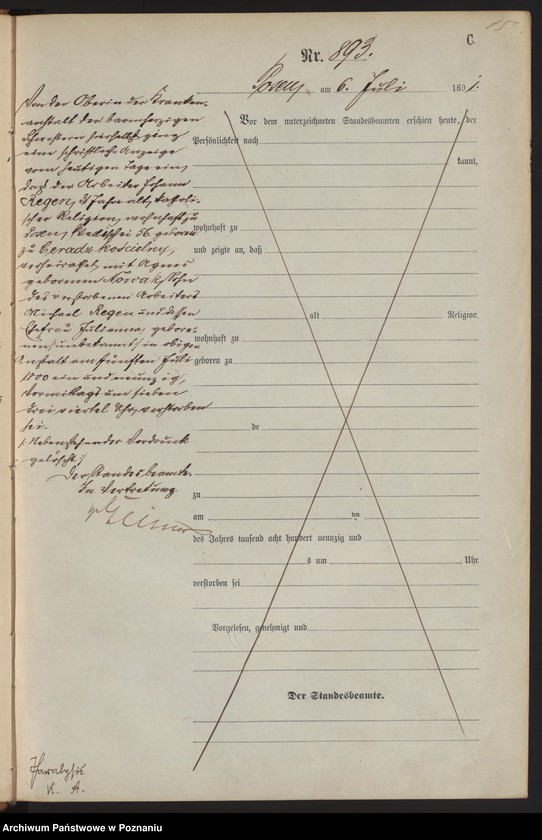 C.
Nr. 893.
Posen, am 6. Juli 1891.
Von der Oberin der Kranken-
anstalt der barmherzigen
Schwestern hierselbst ging
eine schriftliche Anzeige
vom heutigen Tage ein,
daß der Arbeiter Johann
Regen, Jahre alt, katholi-
scher Religion, wohnhaft zu
Posen, 56. geboren
zu Ceradz kościelny,
verheirathet mit Agnes
geborenen Nowak, Sohn
des verstorbenen Arbeiters
Michael Regen und dessen
Ehefrau Julianna, gebore-
nen /unbekannt/ in obiger
Anstalt am fünften Juli
1800 ein und neunzig,
Vormittags um sieben
drei viertel Uhr, verstorben
sei.
/: Nebenstehender Vordruck
gelöscht :/
Der Standesbeamte.
In Vertretung
Paralysis.
K. A.
Vor dem unterzeichneten Standesbeamten erschien heute, der
Persönlichkeit nach
kannt,
wohnhaft zu
und zeigte an, daß
alt Religion,
wohnhaft zu
geboren zu
de
zu
am ten
des Jahres tausend acht hundert neunzig und
s um Uhr
verstorben sei
Vorgelesen, genehmigt und
Der Standesbeamte.
Archiwum Państwowe w Poznaniu